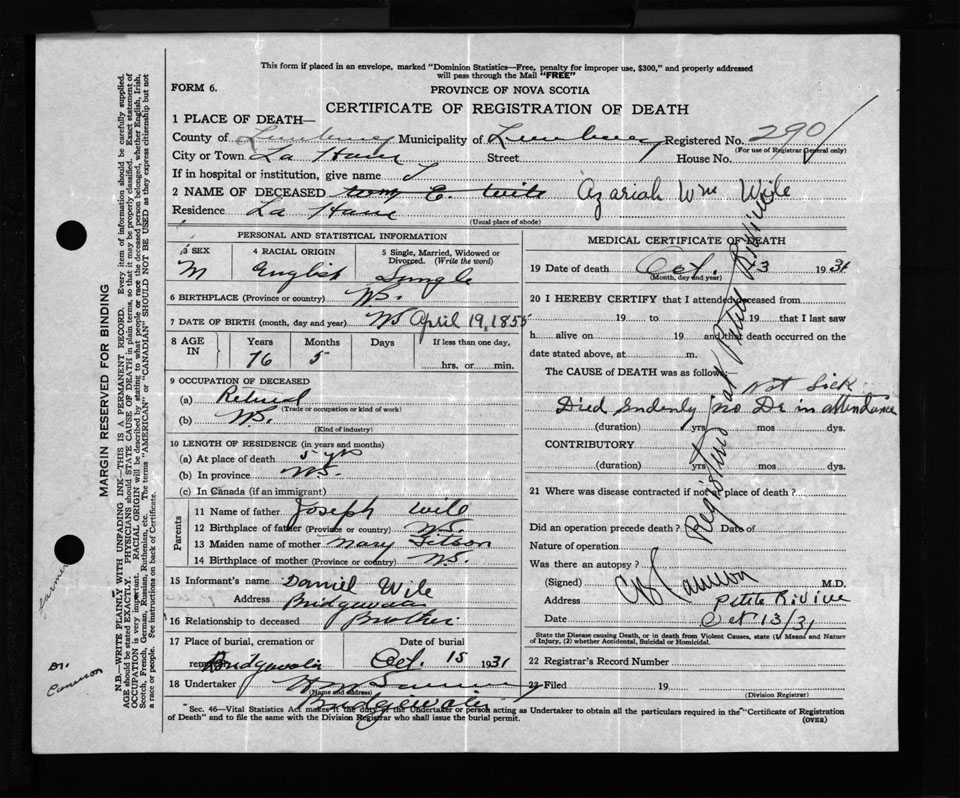 This form if placed in an envelope, marked "Dominion Statistics—Free, penalty for improper use, $300," and properly addressed
will pass through the Mail "FREE"
FORM 6.
PROVINCE OF NOVA SCOTIA
CERTIFICATE OF REGISTRATION OF DEATH
1 PLACE OF DEATH—
County of Lunenburg Municipality of Lunenburg Registered No. 290
(For use of Registrar General only)
City or Town La Have Street House No.
If in hospital or institution, give name
2 NAME OF DECEASED Wm E. Wile Azariah Wm Wile
Residence La Have
(Usual place of abode)
PERSONAL AND STATISTICAL INFORMATION
3 SEX 4 RACIAL ORIGIN 5 Single, Married, Widowed or Divorced. (Write the word)
M English Single
6 BIRTHPLACE (Province or country) N.S.
7 DATE OF BIRTH (month, day and year) NS April 19, 1855
8 AGE IN Years Months Days If less than one day,
76 5 hrs. or min.
9 OCCUPATION OF DECEASED
(a) Retired
(Trade or occupation or kind of work)
(b) N.S.
(Kind of industry)
10 LENGTH OF RESIDENCE (in years and months)
(a) At place of death 5 yrs
(b) In province N.S.
(c) In Canada (if an immigrant)
Parents
11 Name of father Joseph Wile
12 Birthplace of father (Province or country) N.S.
13 Maiden name of mother Mary
14 Birthplace of mother (Province or country) N.S.
15 Informant's name Daniel Wile
Address Bridgewater
16 Relationship to deceased Brother
17 Place of burial, cremation or Date of burial
removal Bridgewater Oct. 15 1931
18 Undertaker
(Name and address)
Bridgewater
MEDICAL CERTIFICATE OF DEATH
19 Date of death Oct. 13 1931
(Month, day and year)
20 I HEREBY CERTIFY that I attended deceased from
19 to 19 that I last saw
h alive on 19 and that death occurred on the
date stated above, at m.
The CAUSE of DEATH was as follows:
Not Sick
Died Sudenly no Dr in attendance
(duration) yrs mos dys.
CONTRIBUTORY
(duration) yrs mos dys.
21 Where was disease contracted if not at place of death?
Did an operation precede death? Date of
Nature of operation
Was there an autopsy?
(Signed) Cameron M.D.
Address Petite Riviere
Date Oct 13/31
State the Disease causing Death, or in death from Violent Causes, state (1) Means and Nature
of Injury, (2) whether Accidental, Suicidal or Homicidal.
22 Registrar's Record Number
23 Filed 19
(Division Registrar)
Registered at Petite Riviere
Sec. 46—Vital Statistics Act makes it the duty of the Undertaker or person acting as Undertaker to obtain all the particulars required in the "Certificate of Registration
of Death" and to file the same with the Division Registrar who shall issue the burial permit.
(OVER)
MARGIN RESERVED FOR BINDING
N.B.—WRITE PLAINLY WITH UNFADING INK—THIS IS A PERMANENT RECORD. Every item of information should be carefully supplied.
AGE should be stated EXACTLY. PHYSICIANS should STATE CAUSE OF DEATH in plain terms, so that it may be properly classified. Exact statement of
OCCUPATION is very important. RACIAL ORIGIN will be described by stating to what people or race the deceased person belonged, whether English, Irish,
Scotch, French, German, Russian, Ruthenian, etc. The terms "AMERICAN" or "CANADIAN" SHOULD NOT BE USED as they express citizenship but not
a race or people. See instructions on back of Certificate.
farmer
Dr.
Cameron